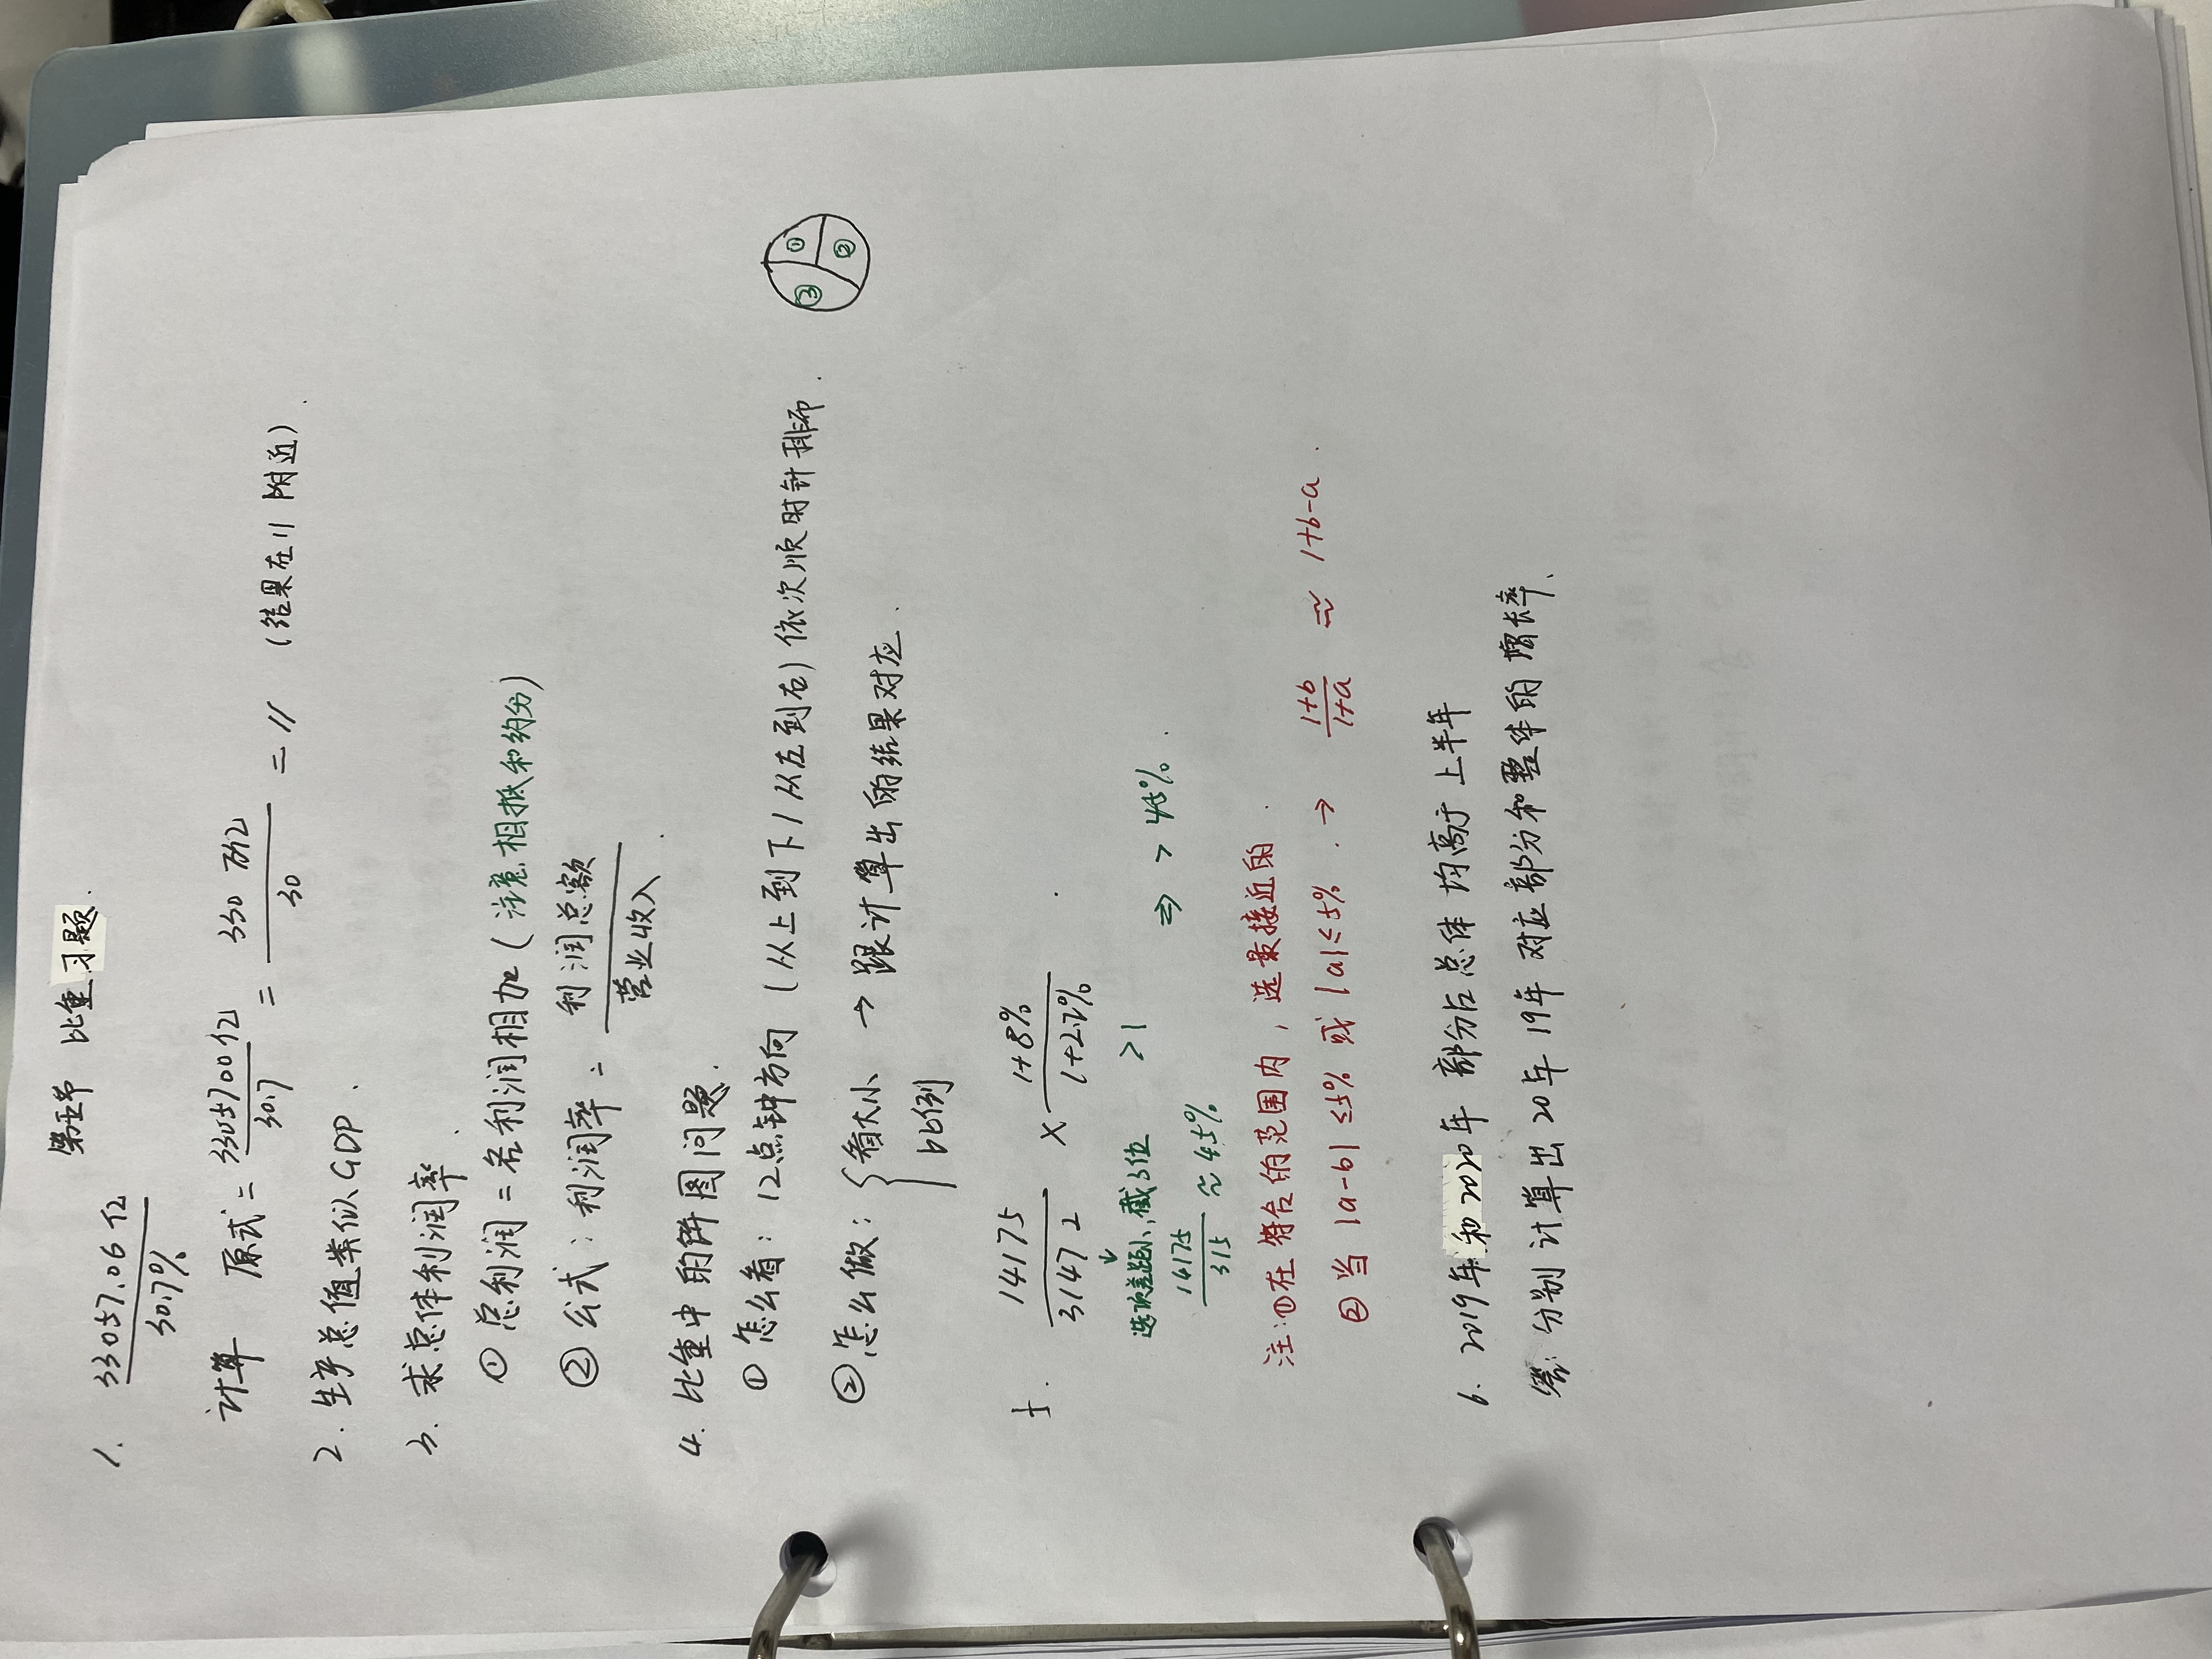 第五节 比重习题.
1. 33057.06亿 / 30.7%
计算 原式 = 3305700亿 / 30.7 = 330万亿 / 30 = 11 (结果在11附近).
2. 生产总值类似GDP.
3. 求总体利润率.
① 总利润 = 各利润相加 (注意相抵和约分)
② 公式: 利润率 = 利润总额 / 营业收入.
4. 比重中的饼图问题.
① 怎么看: 12点钟方向 (从上到下/从左到右) 依次顺时针排布.
① ② ③
② 怎么做: { 看大小 → 跟计算出的结果对应.
比例
5. 14175 / 31472 × 1+8% / 1+2.2% .
选项差距小, 截3位
14175 / 315 ≈ 45% >1 ⇒ > 45%.
注: ① 在符合的范围内, 选最接近的.
② 当 |a-b| ≤5% 或 |a| ≤5%. → 1+b / 1+a ≈ 1+b-a.
6. 2019年和2020年 部分占总体 均高于上半年
分别计算出20年19年对应部分和整体的增长率.